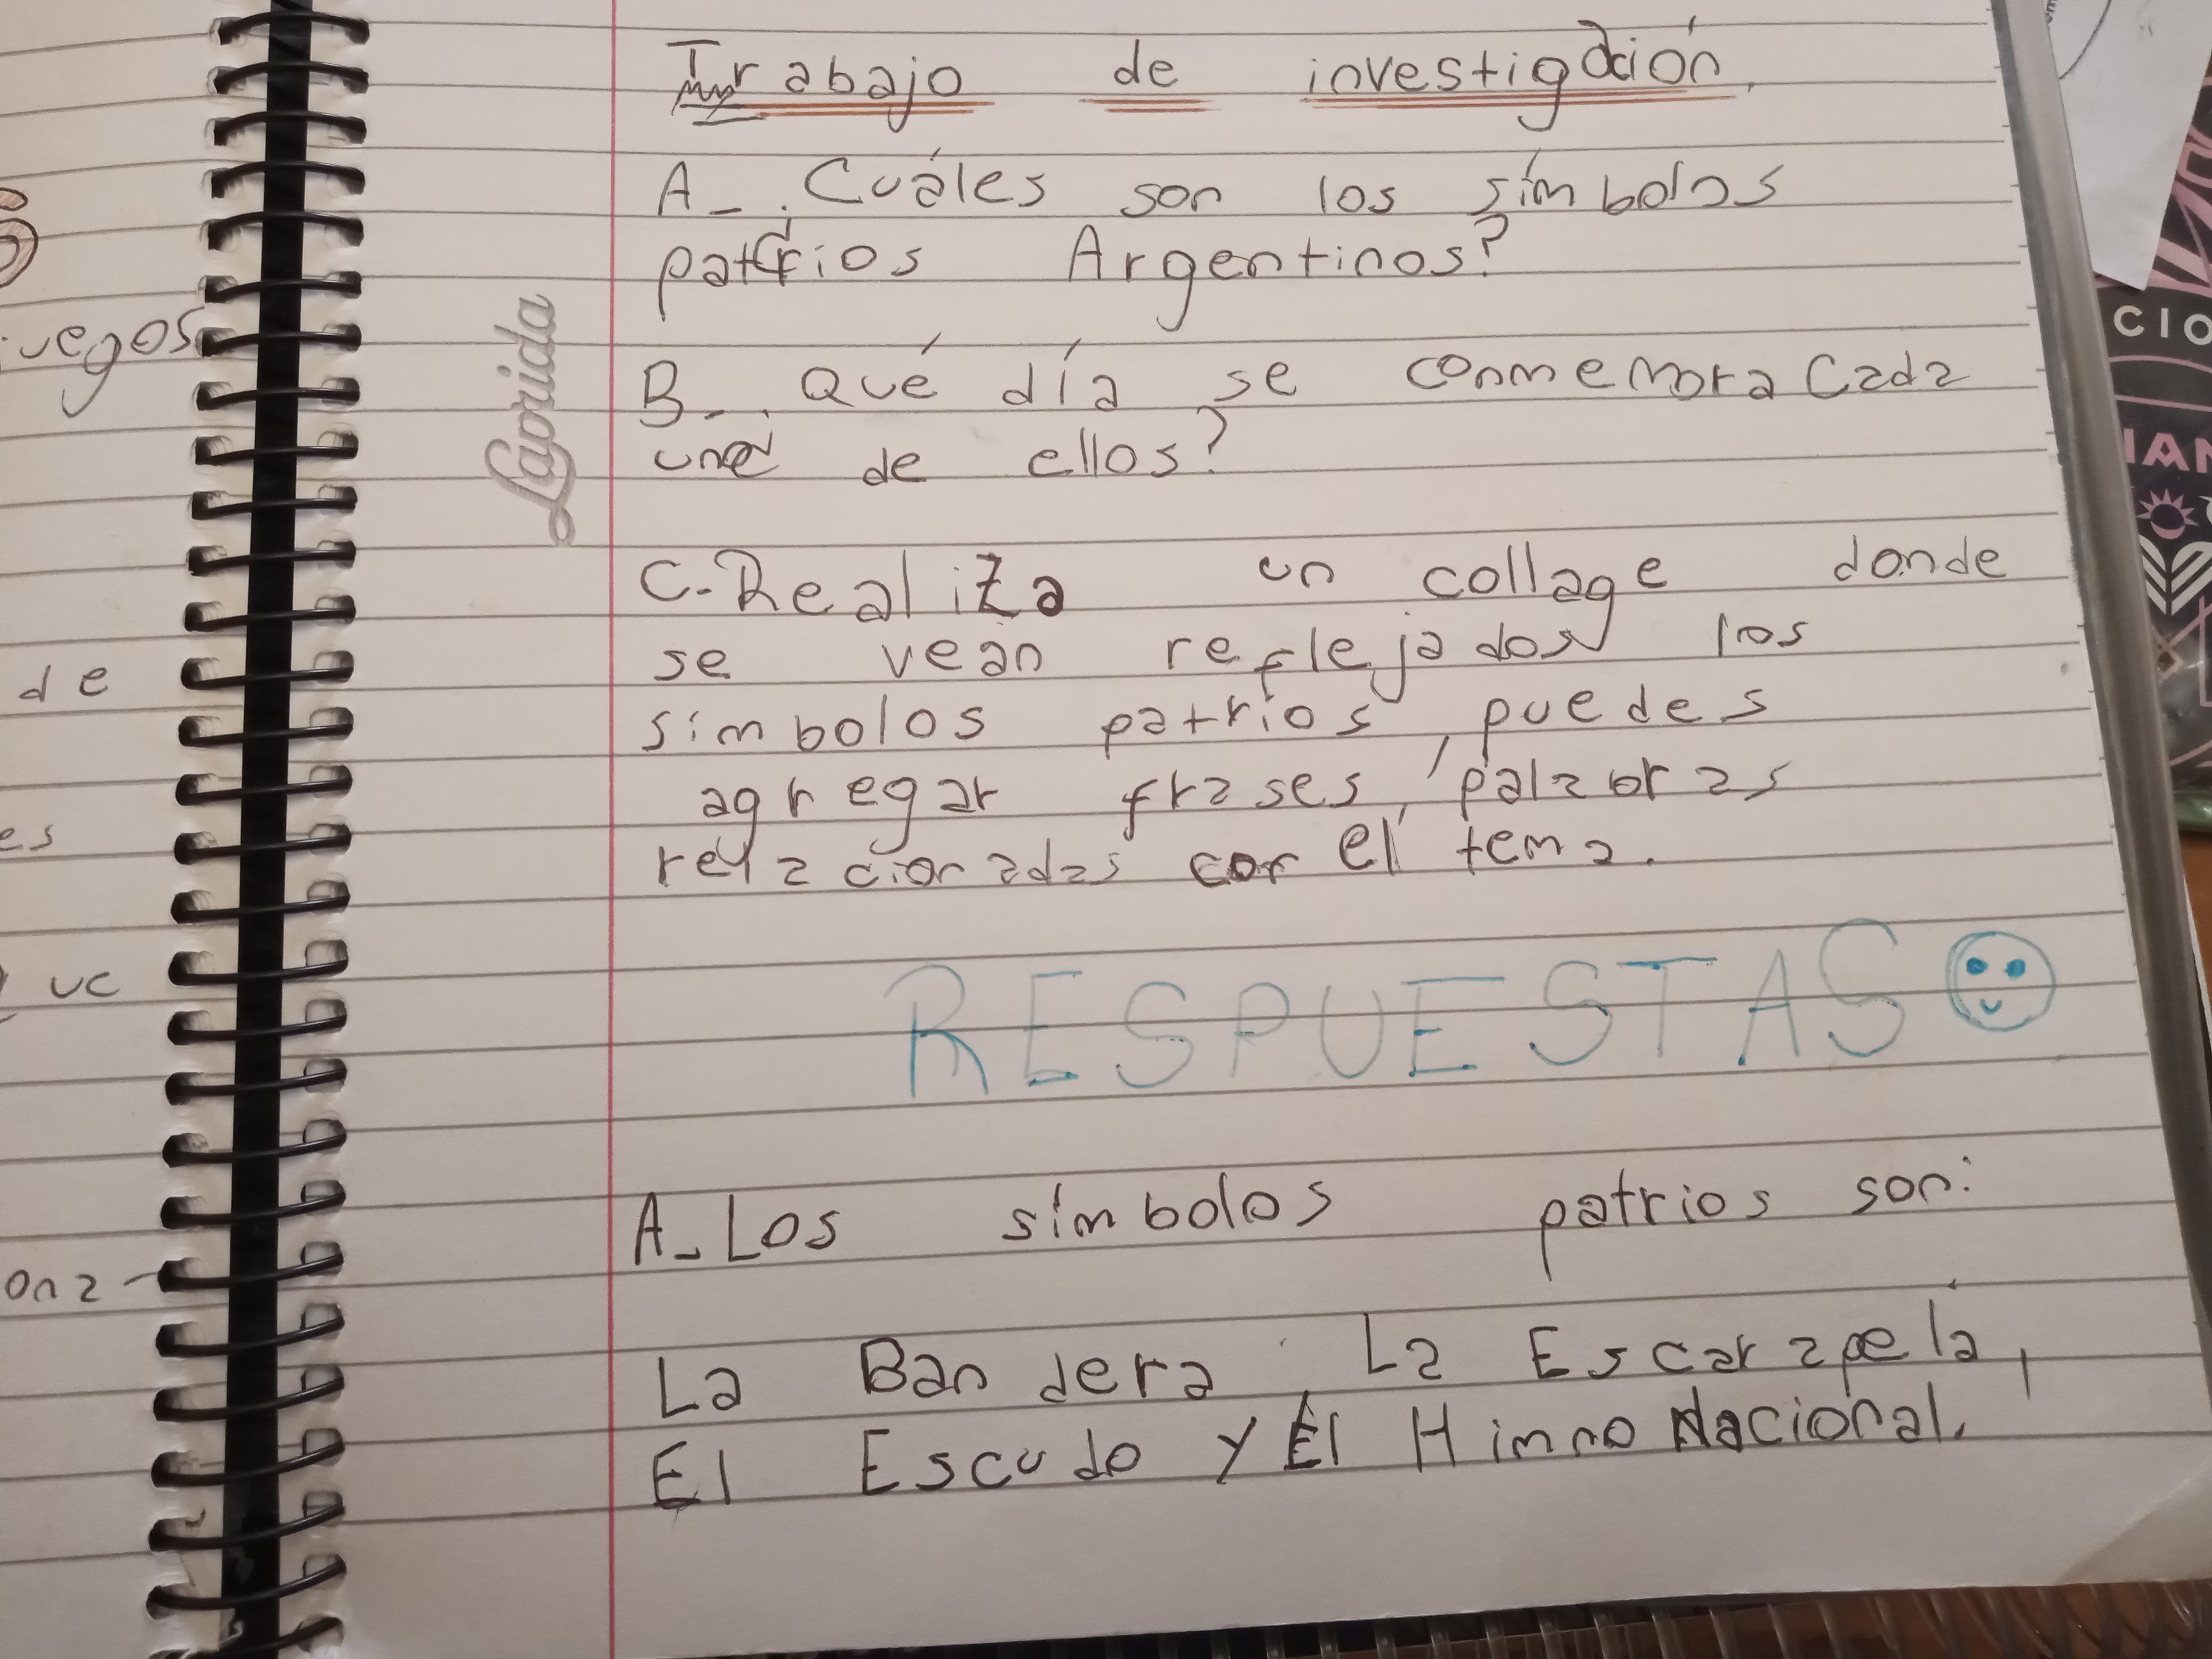 Trabajo de investigación.
A_ ¿Cuáles son los símbolos
patrios Argentinos?
B_. Qué día se conmemora Cada
uno de ellos?
C-Realiza un collage donde
se vean reflejados los
símbolos patrios, puedes
agregar frases, palabras
relacionadas con el tema.
RESPUESTAS
A_Los símbolos patrios son:
La Bandera, La Escarapela,
El Escudo y El Himno Nacional.
Laprida
uegos
de
es
uc
ona-
CIO
IAN